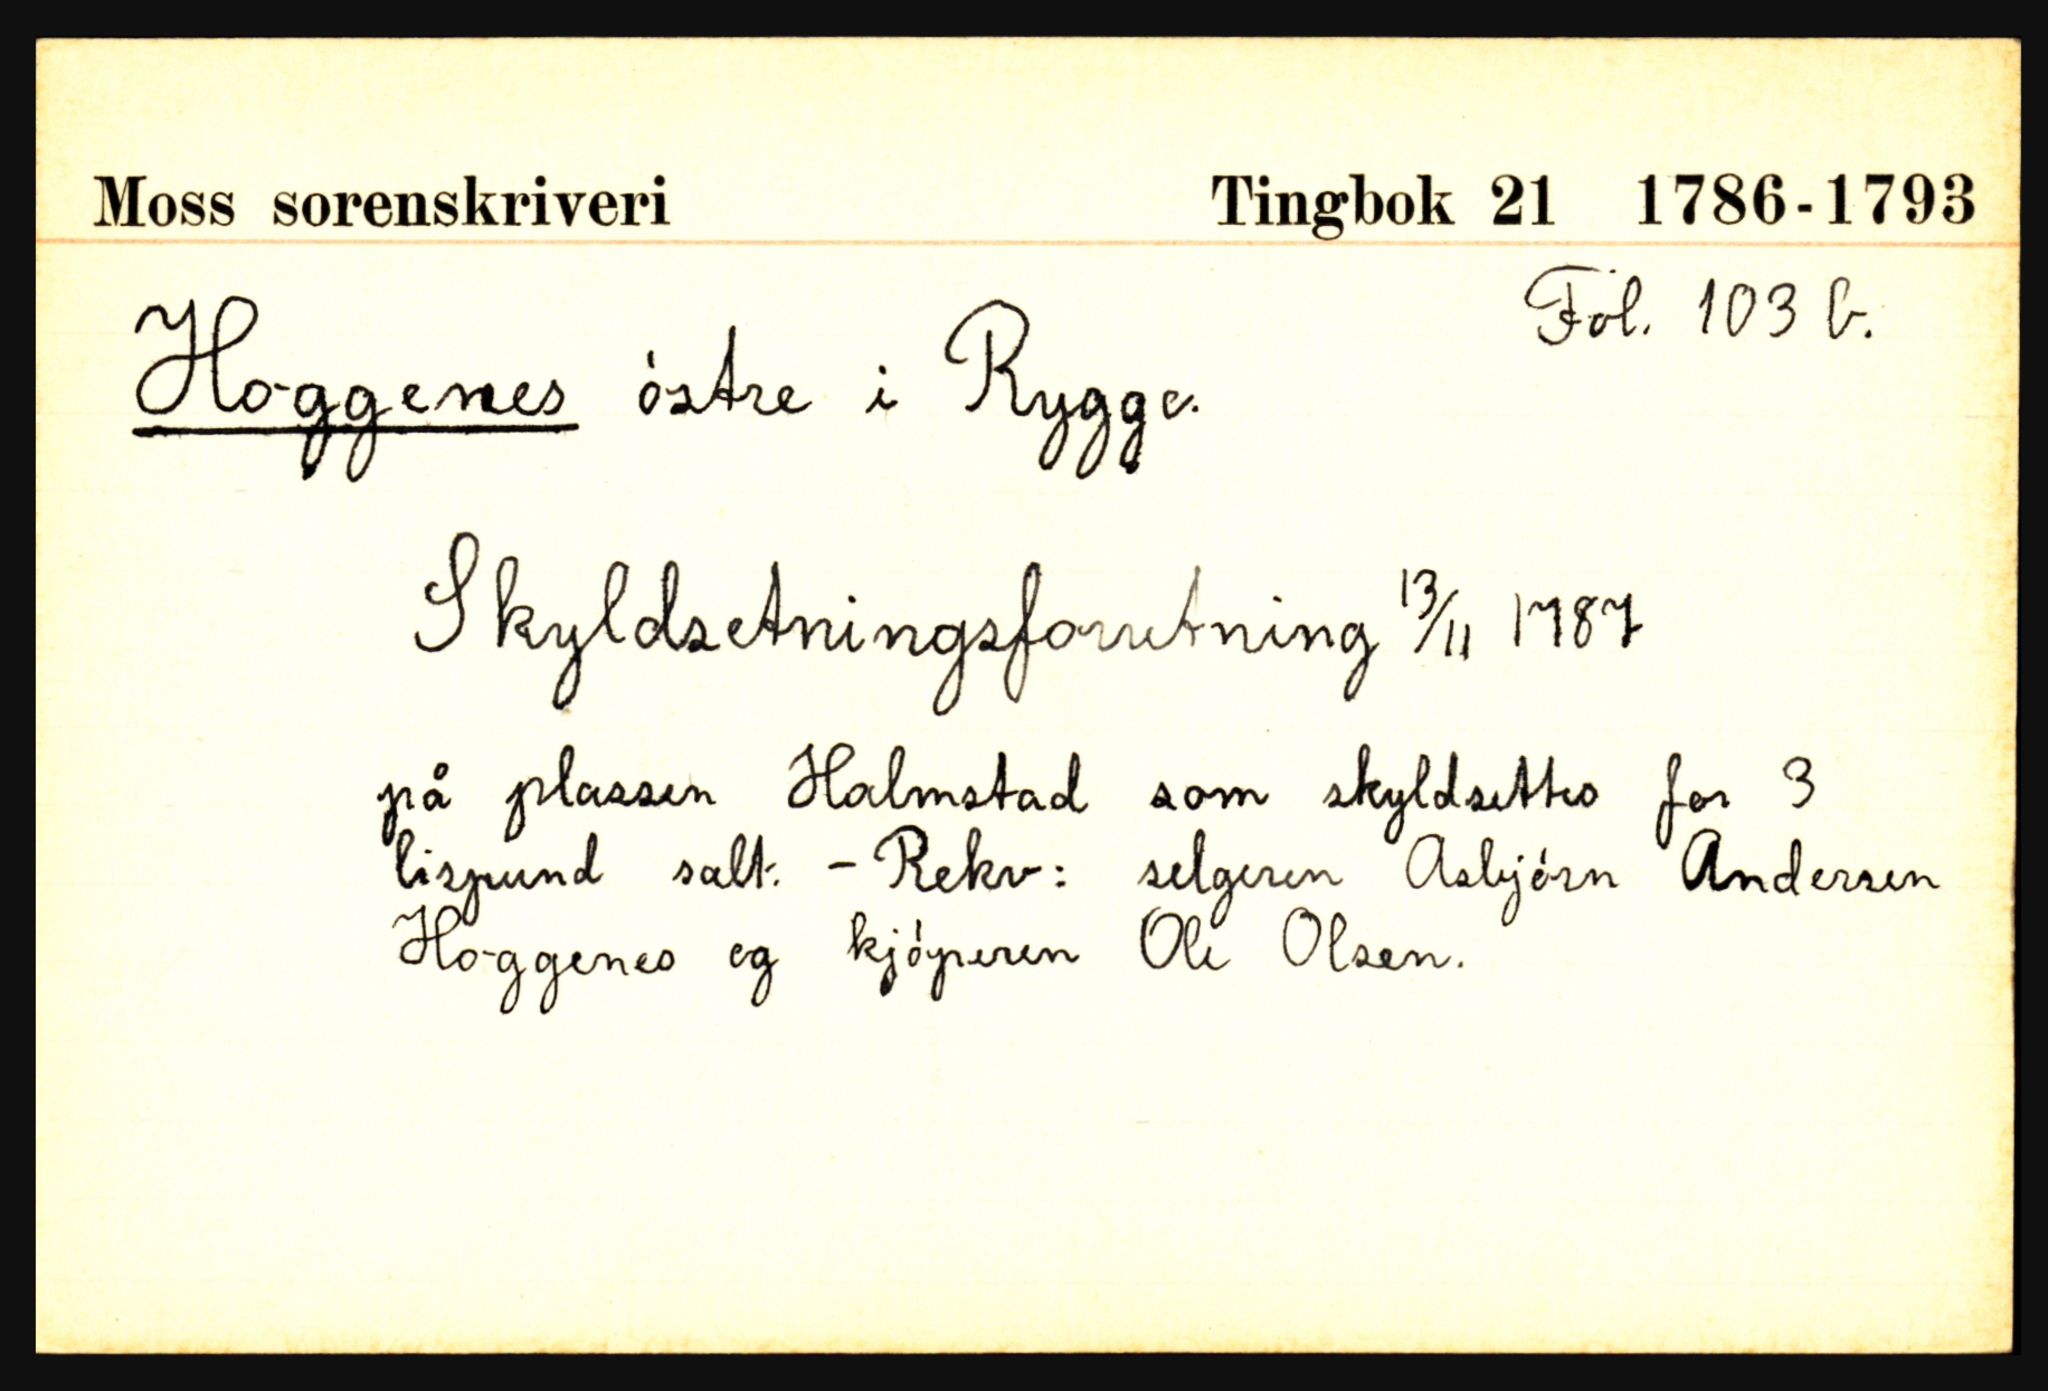 Moss sorenskriveri Tingbok 21 1786-1793
Fol. 103 b.
Hoggenes östre i Rygge.
Skyldsetningsforretning 13/11 1787
på plassen Halmstad som skyldsettes for 3
lispund salt. - Rekv: selgeren Asbjörn Andersen
Hoggenes og kjöperen Ole Olsen.